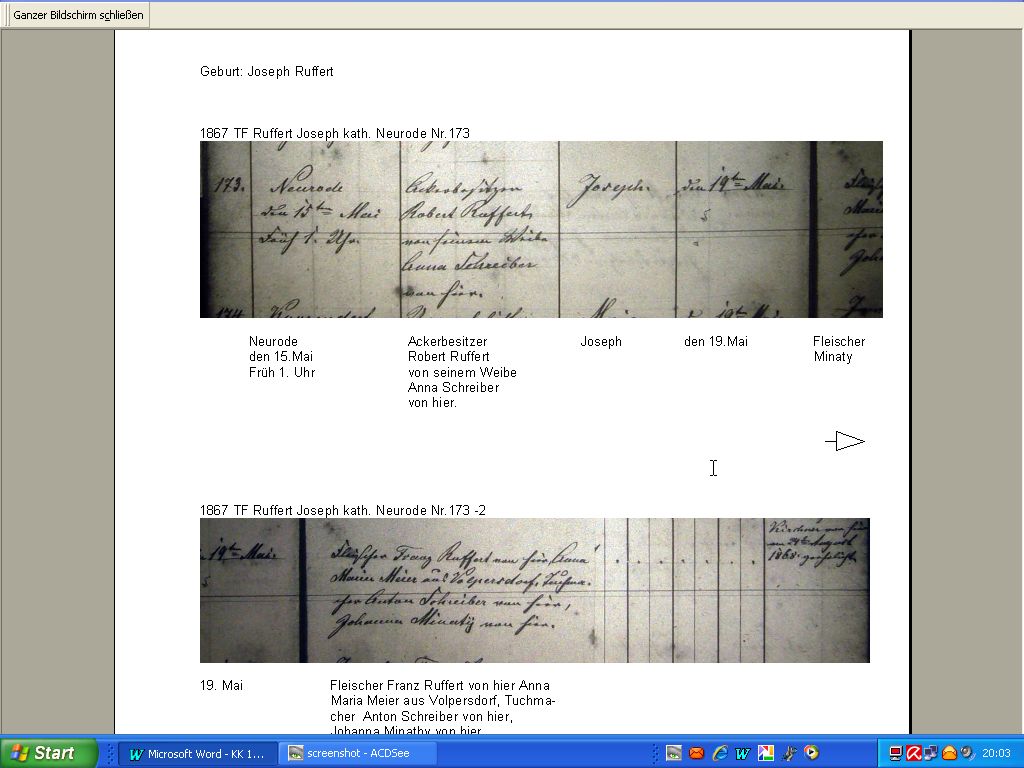 Ganzer Bildschirm schließen
Geburt: Joseph Ruffert
1867 TF Ruffert Joseph kath. Neurode Nr.173
173. Neurode Ackerbesitzer Joseph. den 19ten Mai.
den 15ten Mai Robert Rufferts
Früh 1. Uhr. von seinem Weibe
Anna Schreiber
von hier.
174
Neurode Ackerbesitzer Joseph den 19.Mai Fleischer
den 15.Mai Robert Ruffert Minaty
Früh 1. Uhr von seinem Weibe
Anna Schreiber
von hier.
1867 TF Ruffert Joseph kath. Neurode Nr.173 -2
19ten Mai. Fleischer Franz Ruffert von hier Anna
Maria Meier aus Volpersdorf, Tuchma-
cher Anton Schreiber von hier,
Johanna Minaty von hier.
am 24ten August
1868
19. Mai Fleischer Franz Ruffert von hier Anna
Maria Meier aus Volpersdorf, Tuchma-
cher Anton Schreiber von hier,
Johanna Minathy von hier
Start Microsoft Word - KK 1... screenshot - ACDSee 20:03